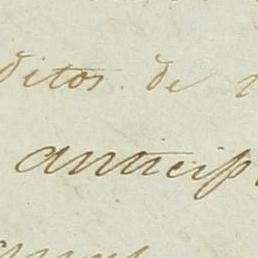 ditos de
anticip